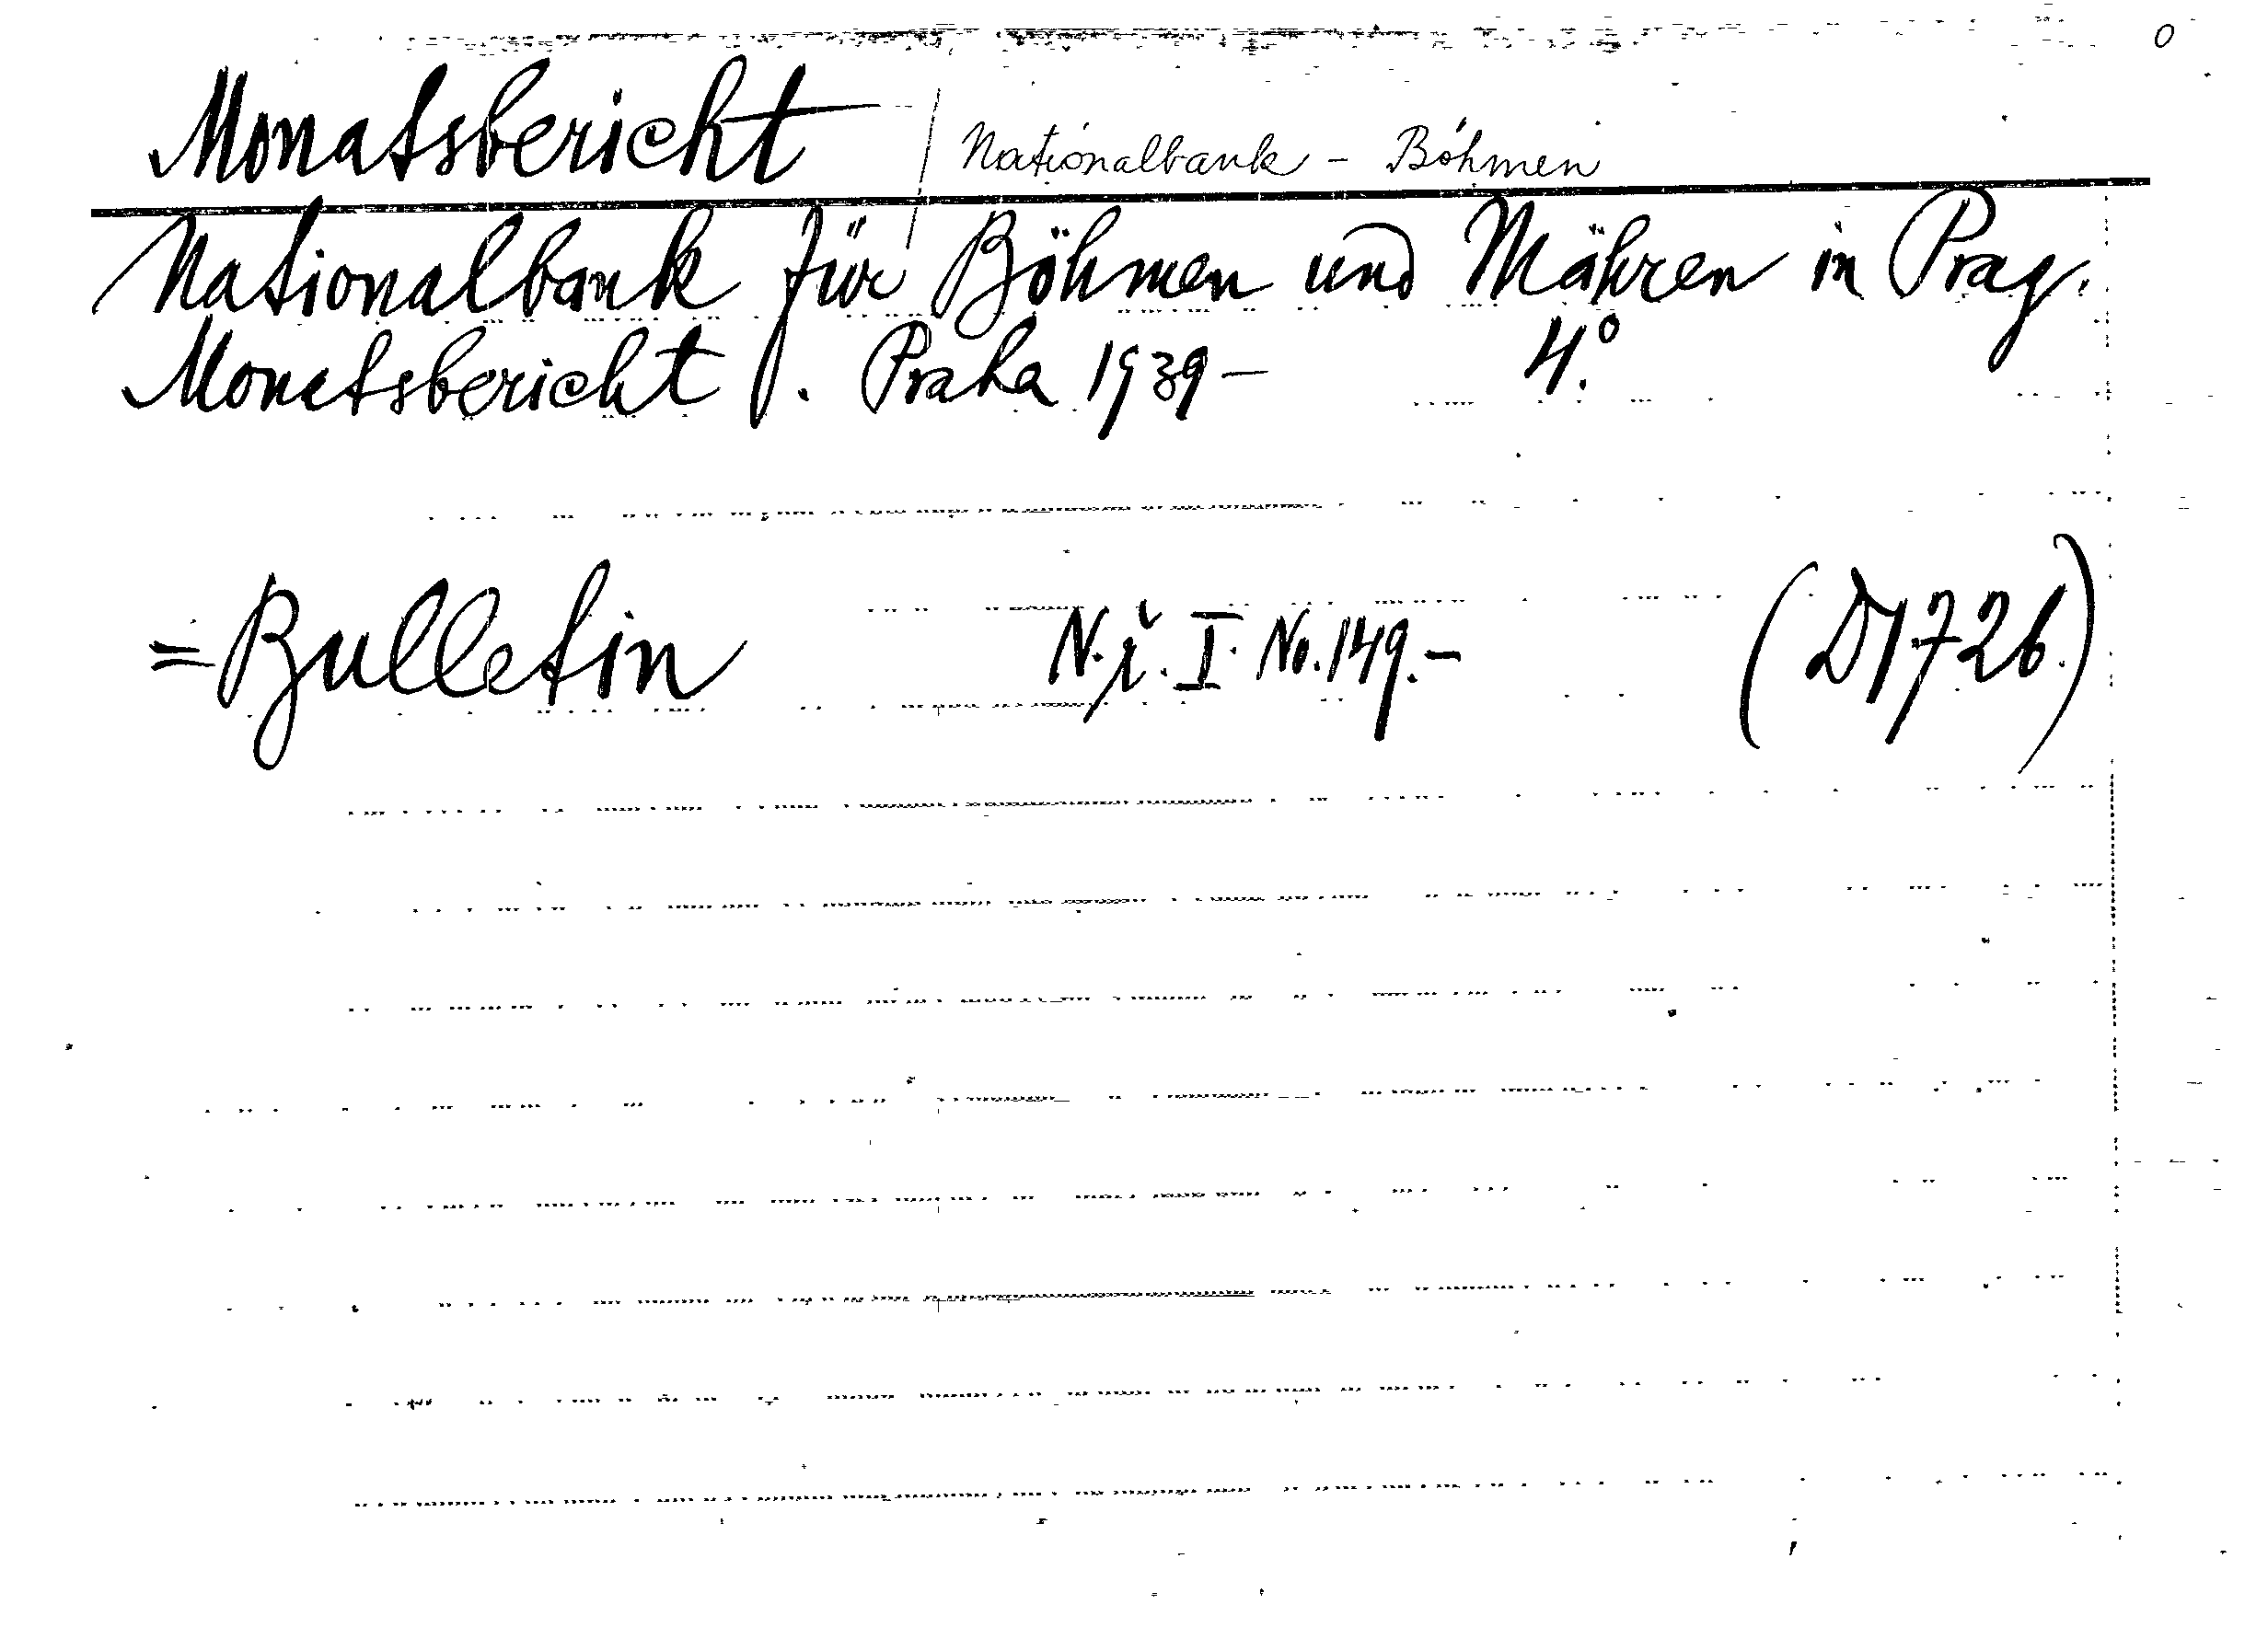 0
Monatsbericht / Nationalbank - Böhmen
Nationalbank für Böhmen und Mähren in Prag.
Monatsbericht. Praha 1939- 4.°
= Bulletin N.ř. I. No. 149.- (D1726.)